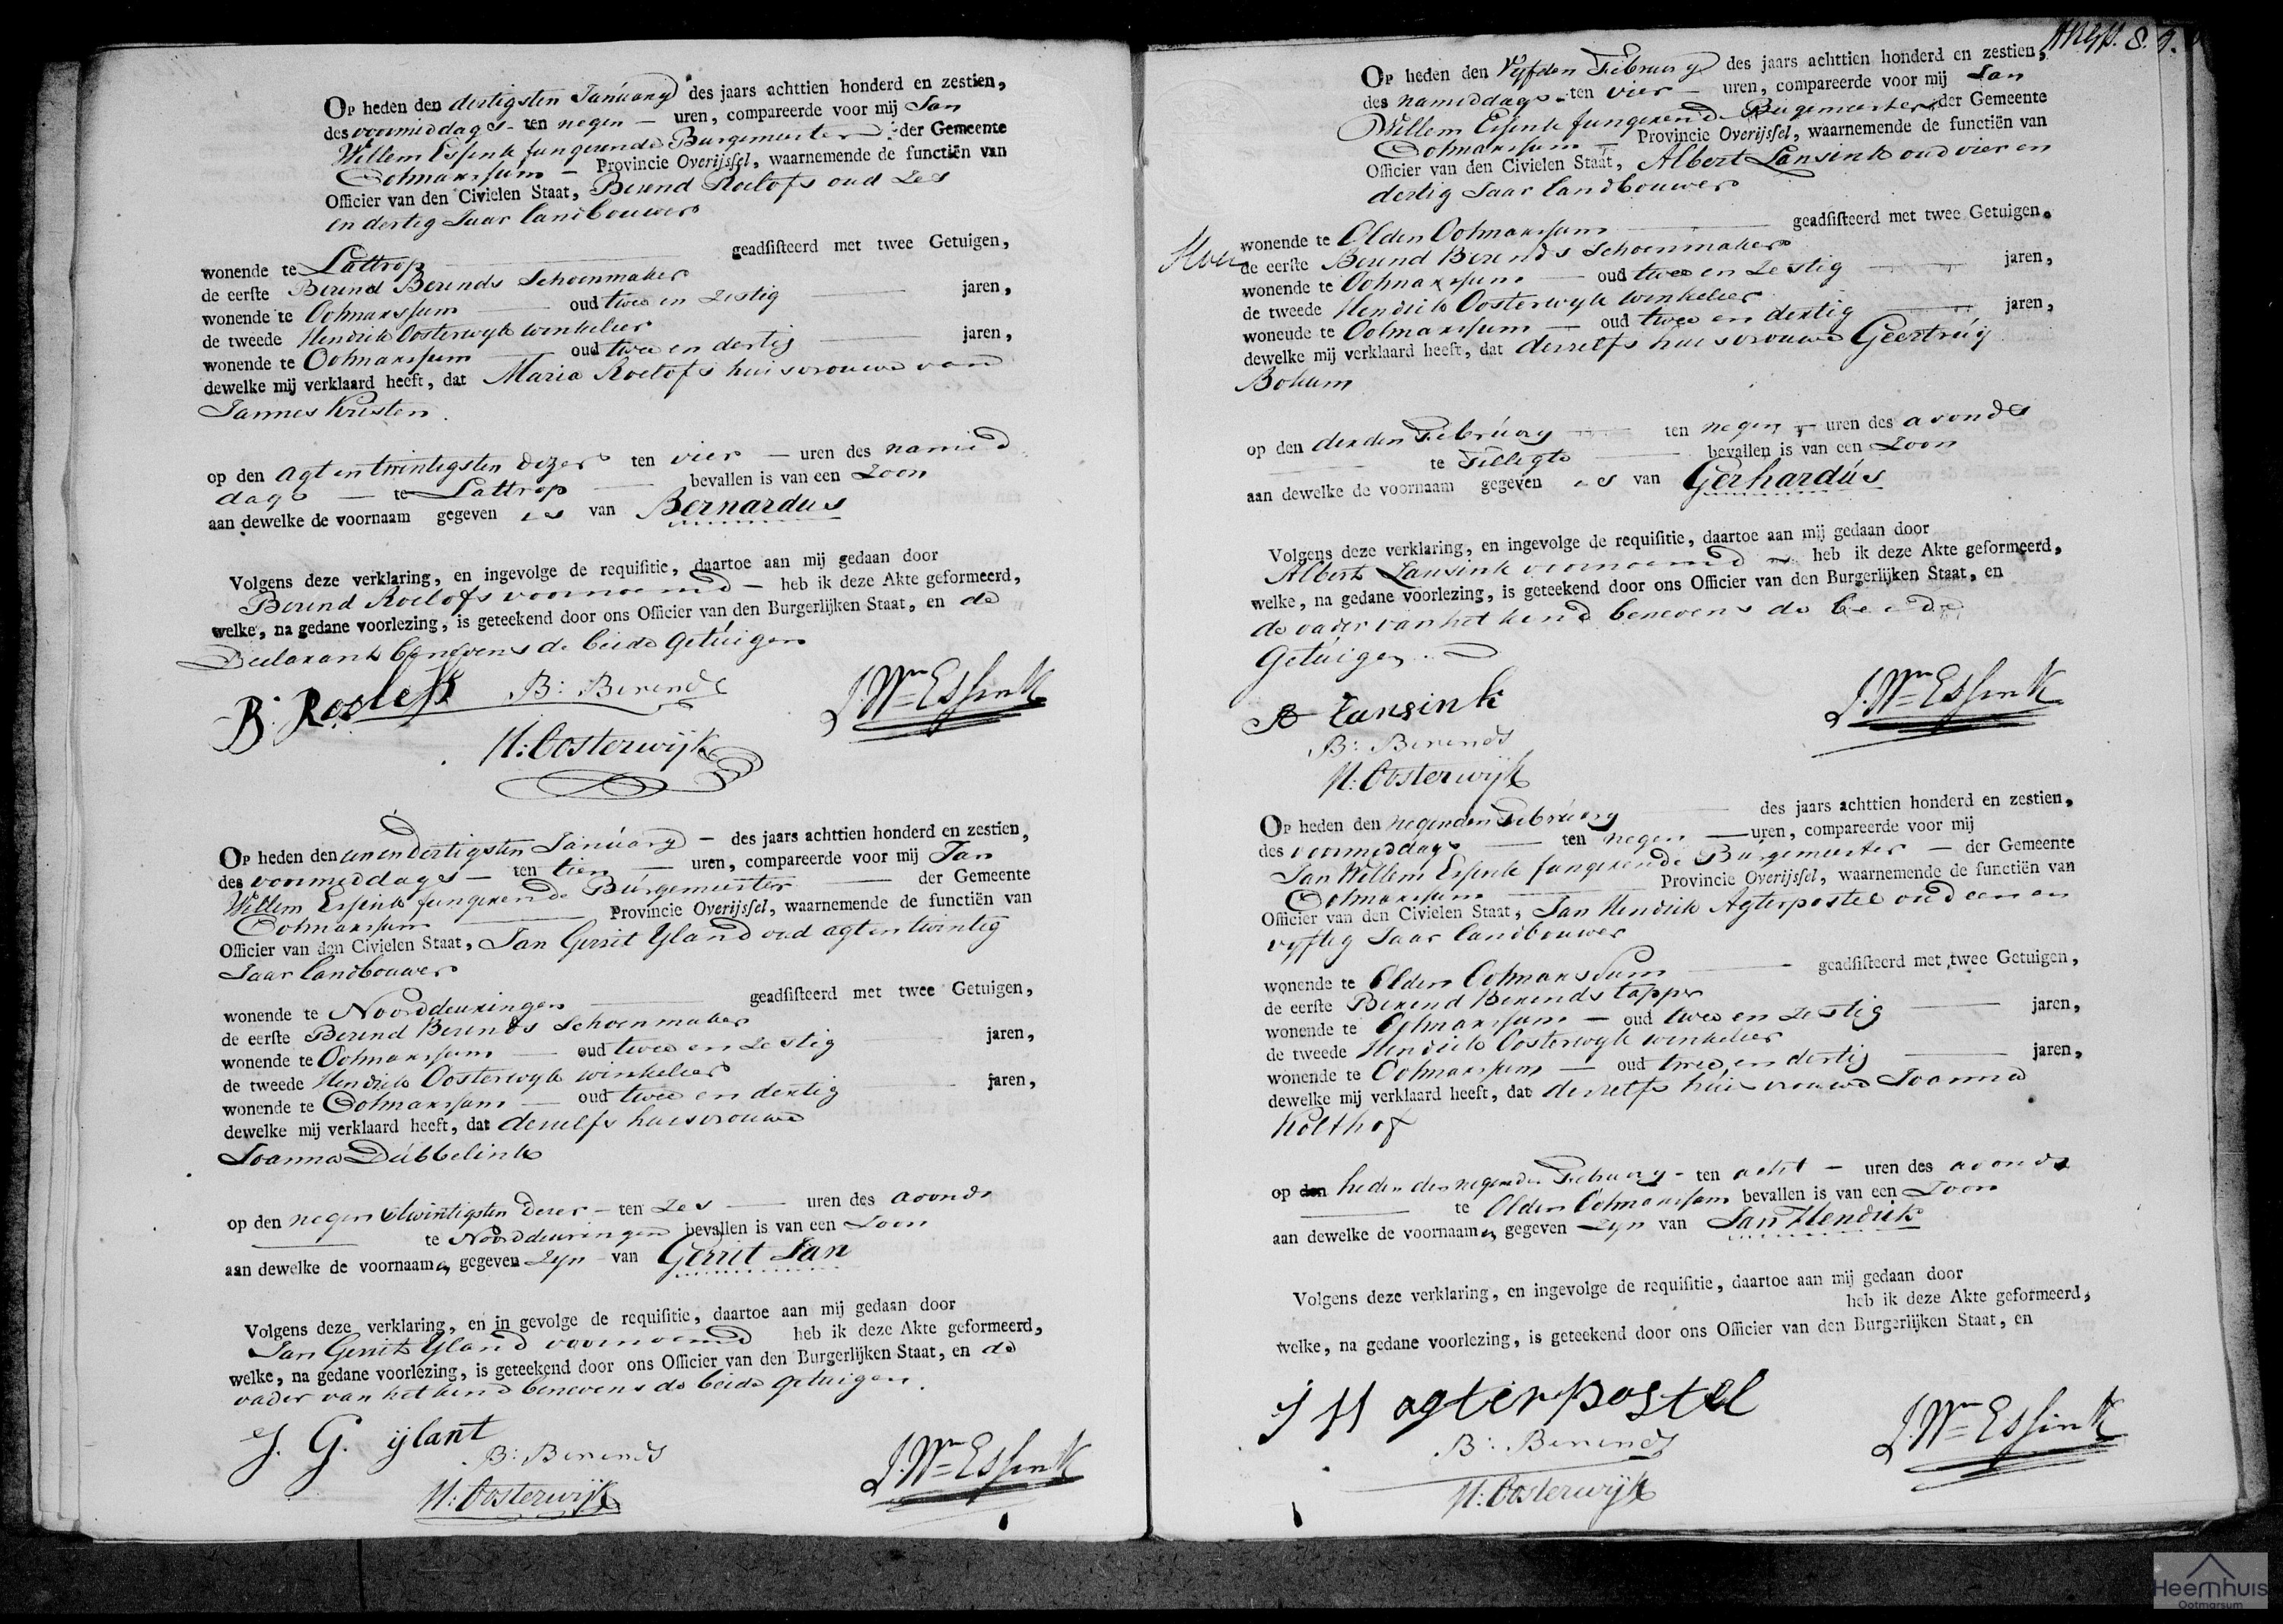 Op heden den dertigsten January des jaars achttien honderd en zestien,
des voormiddags ten negen uren, compareerde voor mij Jan
Willem Essink fungerende Burgemeester der Gemeente
Ootmarssum Provincie Overijssel, waarnemende de functiën van
Officier van den Civielen Staat, Berend Roelofs oud zes
en dertig Jaar landbouwer
wonende te Lattrop geadsisteerd met twee Getuigen,
de eerste Berend Berends Schoenmaker
wonende te Ootmarssum oud twee en zestig jaren,
de tweede Hendrik Oosterwyk winkelier
wonende te Ootmarssum oud twee en dertig jaren,
dewelke mij verklaard heeft, dat Maria Roelofs huisvrouwe van
Jannes Kristen.
op den agt en twintigsten dezer ten vier uren des namid
dags te Lattrop bevallen is van een Zoon
aan dewelke de voornaam gegeven is van Bernardus
Volgens deze verklaring, en ingevolge de requisitie, daartoe aan mij gedaan door
Berend Roelofs voornoemd heb ik deze Akte geformeerd,
welke, na gedane voorlezing, is geteekend door ons Officier van den Burgerlijken Staat, en de
Declarant benevens de beide Getuigen
B: Roelefs B: Berends J. Wm Essink
H: Oosterwijk
Op heden den eenendertigsten January des jaars achttien honderd en zestien,
des voormiddags ten tien uren, compareerde voor mij Jan
Willem Essink fungerende Burgemeester der Gemeente
Ootmarssum Provincie Overijssel, waarnemende de functiën van
Officier van den Civielen Staat, Jan Gerrit Yland oud agt en twintig
Jaar landbouwer
wonende te Noorddeuringen geadsisteerd met twee Getuigen,
de eerste Berend Berends Schoenmaker
wonende te Ootmarssum oud twee en zestig jaren,
de tweede Hendrik Oosterwyk winkelier
wonende te Ootmarssum oud twee en dertig jaren,
dewelke mij verklaard heeft, dat deszelfs huisvrouwe
Joanna Dubbelink
op den negen & twintigsten dezer ten zes uren des avonds
te Noorddeuringen bevallen is van een Zoon
aan dewelke de voornaamen gegeven zyn van Gerrit Jan
Volgens deze verklaring, en in gevolge de requisitie, daartoe aan mij gedaan door
Jan Gerrit Yland voornoemd heb ik deze Akte geformeerd,
welke, na gedane voorlezing, is geteekend door ons Officier van den Burgerlijken Staat, en de
vader van het kind benevens de beide getuigen.
J. G. ijlant
B: Berends J. Wm Essink
H: Oosterwijk
8. 9.
Op heden den Vyfden February des jaars achttien honderd en zestien,
des namiddags ten vier uren, compareerde voor mij Jan
Willem Essink fungerende Burgemeester der Gemeente
Ootmarssum Provincie Overijssel, waarnemende de functiën van
Officier van den Civielen Staat, Albert Lansink oud vier en
dertig Jaar landbouwer
wonende te Olden Ootmarssum geadsisteerd met twee Getuigen,
de eerste Berend Berends Schoenmaker
wonende te Ootmarssum oud twee en zestig jaren,
de tweede Hendrik Oosterwyk winkelier
wonende te Ootmarssum oud twee en dertig jaren,
dewelke mij verklaard heeft, dat deszelfs huisvrouwe Geertruy
Bokum
op den derden February ten negen uren des avonds
te Tilligte bevallen is van een Zoon
aan dewelke de voornaam gegeven is van Gerhardus
Volgens deze verklaring, en ingevolge de requisitie, daartoe aan mij gedaan door
Albert Lansink voornoemd heb ik deze Akte geformeerd,
welke, na gedane voorlezing, is geteekend door ons Officier van den Burgerlijken Staat, en
de vader van het kind benevens de beide
Getuigen
A Lansink J. Wm Essink
B: Berends
H: Oosterwijk
Op heden den negenden February des jaars achttien honderd en zestien,
des voormiddags ten negen uren, compareerde voor mij
Jan Willem Essink fungerende Burgemeester der Gemeente
Ootmarssum Provincie Overijssel, waarnemende de functiën van
Officier van den Civielen Staat, Jan Hendrik Agterpostel oud een en
vyftig Jaar landbouwer
wonende te Olden Ootmarssum geadsisteerd met twee Getuigen,
de eerste Berend Berends tapper
wonende te Ootmarssum oud twee en zestig jaren,
de tweede Hendrik Oosterwyk winkelier
wonende te Ootmarssum oud twee en dertig jaren,
dewelke mij verklaard heeft, dat deszelfs huisvrouwe Joanna
Kolthof
op den heden den negenden February ten acht uren des avonds
te Olden Ootmarssum bevallen is van een Zoon
aan dewelke de voornaamen gegeven zyn van Jan Hendrik
Volgens deze verklaring, en ingevolge de requisitie, daartoe aan mij gedaan door
heb ik deze Akte geformeerd,
welke, na gedane voorlezing, is geteekend door ons Officier van den Burgerlijken Staat, en
J H agterpostel
B: Berends J. Wm Essink
H: Oosterwijk
Heemhuis
Ootmarsum